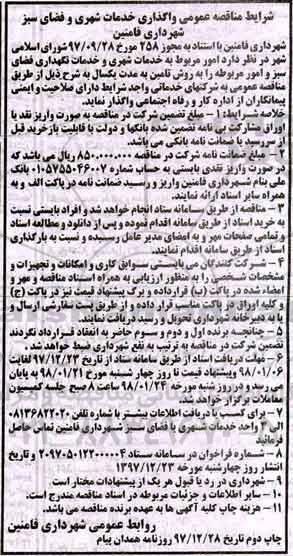 شرایط مناقصه عمومی واگذاری خدمات شهری و فضای سبز
شهرداری فامنین
شهرداری فامنین با استناد به مجوز ۲۵۸ مورخ ۹۷/۰۹/۲۸ شورای اسلامی
شهر در نظر دارد امور مربوط به خدمات شهری و خدمات نگهداری فضای
سبز و امور مربوطه را به روش تامین به مدت یکسال به شرح ذیل از طریق
مناقصه عمومی به شرکتهای خدماتی واجد شرایط دارای صلاحیت و ایمنی
پیمانکاران از اداره کار و رفاه اجتماعی واگذار نماید.
خلاصه شرایط: ۱- مبلغ تضمین شرکت در مناقصه به صورت واریز نقد یا
اوراق مشارکت بی نامه تضمین شده بانکها و دولت با قابلیت بازخرید قبل
از سررسید یا ضمانت نامه بانکی می باشد.
۲- مبلغ ضمانت نامه شرکت در مناقصه ۸۵۰,۰۰۰,۰۰۰ ریال می باشد که
در صورت واریز نقدی بایستی به حساب شماره ۰۱۰۵۷۵۵۰۴۶۰۰۷ بانک
ملی بنام شهرداری فامنین واریز و رسید ضمانت نامه در پاکت الف و به
همراه سایر اسناد ارائه نمایند.
۳- مناقصه از طریق سامانه ستاد انجام خواهد شد و افراد بایستی نسبت
به خرید اسناد از طریق سامانه اقدام نموده و پس از دانلود و مطالعه اسناد
و تمامی صفحات مهر و به امضای مدیر عامل رسیده و نسبت به بارگذاری
اسناد از طریق سامانه اقدام نمایند.
۴- شرکت کنندگان می بایستی سوابق کاری و امکانات و تجهیزات و
مشخصات شخصی را به منظور ارزیابی به همراه اسناد مناقصه و مهر و
امضاء شده در پاکت (ب) قرارداده و برگ پیشنهاد قیمت نیز در پاکت (ج)
و کلیه اوراق در پاکت مناسب قرار داده و از طریق پست سفارشی ارسال و
یا به دبیرخانه شهرداری تحویل و رسید دریافت نمایند.
۵- چنانچه برنده اول و دوم و سوم حاضر به انعقاد قرارداد نگردند
تضمین شرکت در مناقصه به ترتیب به نفع شهرداری ضبط خواهد شد.
۶- مهلت دریافت اسناد از طریق سامانه ستاد از تاریخ ۹۷/۱۲/۲۳ لغایت
۹۸/۰۱/۰۶ و پیشنهاد قیمت تا روز چهار شنبه مورخ ۹۸/۰۱/۲۱ به پایان
می رسد و در روز شنبه مورخه ۹۸/۰۱/۲۴ ساعت ۸ صبح جلسه کمیسیون
معاملات برگزار خواهد شد.
۷- برای کسب یا دریافت اطلاعات بیشتر با شماره تلفن ۰۸۱۳۶۸۲۲۰۲۰
الی ۳ واحد خدمات شهری یا فضای سبز شهرداری فامنین تماس حاصل
فرمائید
۸- شماره فراخوان در سامانه ستاد ۲۰۹۷۰۵۰۱۲۲۰۰۰۰۰۴ و تاریخ
انتشار روز چهارشنبه مورخه ۱۳۹۷/۱۲/۲۳
۹- شهرداری در رد یا قبول هر یک از پیشنهادات مختار است.
۱۰- سایر اطلاعات و جزئیات مربوطه در اسناد مناقصه مندرج است.
۱۱- هزینه چاپ کلیه آگهی ها به عهده برنده مناقصه می باشد.
روابط عمومی شهرداری فامنین
چاپ دوم تاریخ ۹۷/۱۲/۲۸ روزنامه همدان پیام